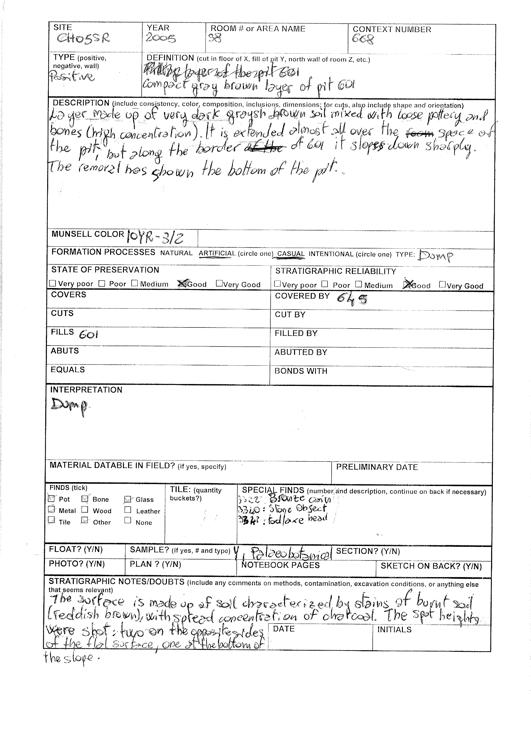 SITE YEAR ROOM # or AREA NAME CONTEXT NUMBER
CH05SR 2005 38 668
TYPE (positive, negative, wall) DEFINITION (cut in floor of X, fill of pit Y, north wall of room Z, etc.)
Positive layer of the pit 601
compact gray brown layer of pit 601
DESCRIPTION (include consistency, color, composition, inclusions, dimensions; for cuts, also include shape and orientation)
Layer made up of very dark graysh brown soil mixed with loose pottery and
bones (high concentration). It is extended almost all over the form space of
the pit, but along the border of the of 601 it slopes down sharply.
The removal has shown the bottom of the pit.
MUNSELL COLOR 10YR-3/2
FORMATION PROCESSES NATURAL ARTIFICIAL (circle one) CASUAL INTENTIONAL (circle one) TYPE: Dump
STATE OF PRESERVATION STRATIGRAPHIC RELIABILITY
Very poor Poor Medium Good Very Good Very poor Poor Medium Good Very Good
COVERS COVERED BY 645
CUTS CUT BY
FILLS 601 FILLED BY
ABUTS ABUTTED BY
EQUALS BONDS WITH
INTERPRETATION
Dump
MATERIAL DATABLE IN FIELD? (if yes, specify) PRELIMINARY DATE
FINDS (tick) TILE: (quantity buckets?) SPECIAL FINDS (number and description, continue on back if necessary)
Pot Bone Glass Bronze coin
Metal Wood Leather 3340: Stone Object
Tile Other None bead
FLOAT? (Y/N) SAMPLE? (if yes, # and type) Y, Palaeobotanical SECTION? (Y/N)
PHOTO? (Y/N) PLAN ? (Y/N) NOTEBOOK PAGES SKETCH ON BACK? (Y/N)
STRATIGRAPHIC NOTES/DOUBTS (include any comments on methods, contamination, excavation conditions, or anything else
that seems relevant)
The surface is made up of soil characterized by stains of burnt soil
(reddish brown), with spread concentration of charcoal. The spot heights
were shot: two on the opposite sides
of the flat surface, one at the bottom of
the slope.
DATE INITIALS